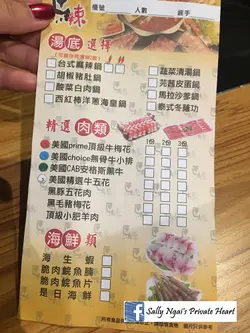 麻辣
檯號 人數 經手
湯底選擇
台式麻辣鍋
胡椒豬肚鍋
酸菜白肉鍋
西紅柿洋蔥海皇鍋
蔬菜清湯鍋
芫茜皮蛋鍋
馬拉沙爹鍋
泰式冬蔭功
精選肉類
1份 2份 3份
美國prime頂級牛梅花
美國choice無骨牛小排
美國CAB安格斯黑牛
美國精選牛五花
黑豚五花肉
黑毛豬梅花
頂級小肥羊肉
海鮮類
海生蝦
脆肉鯇魚腩
脆肉鯇魚片
是日海鮮
Sally Ngai's Private Heart